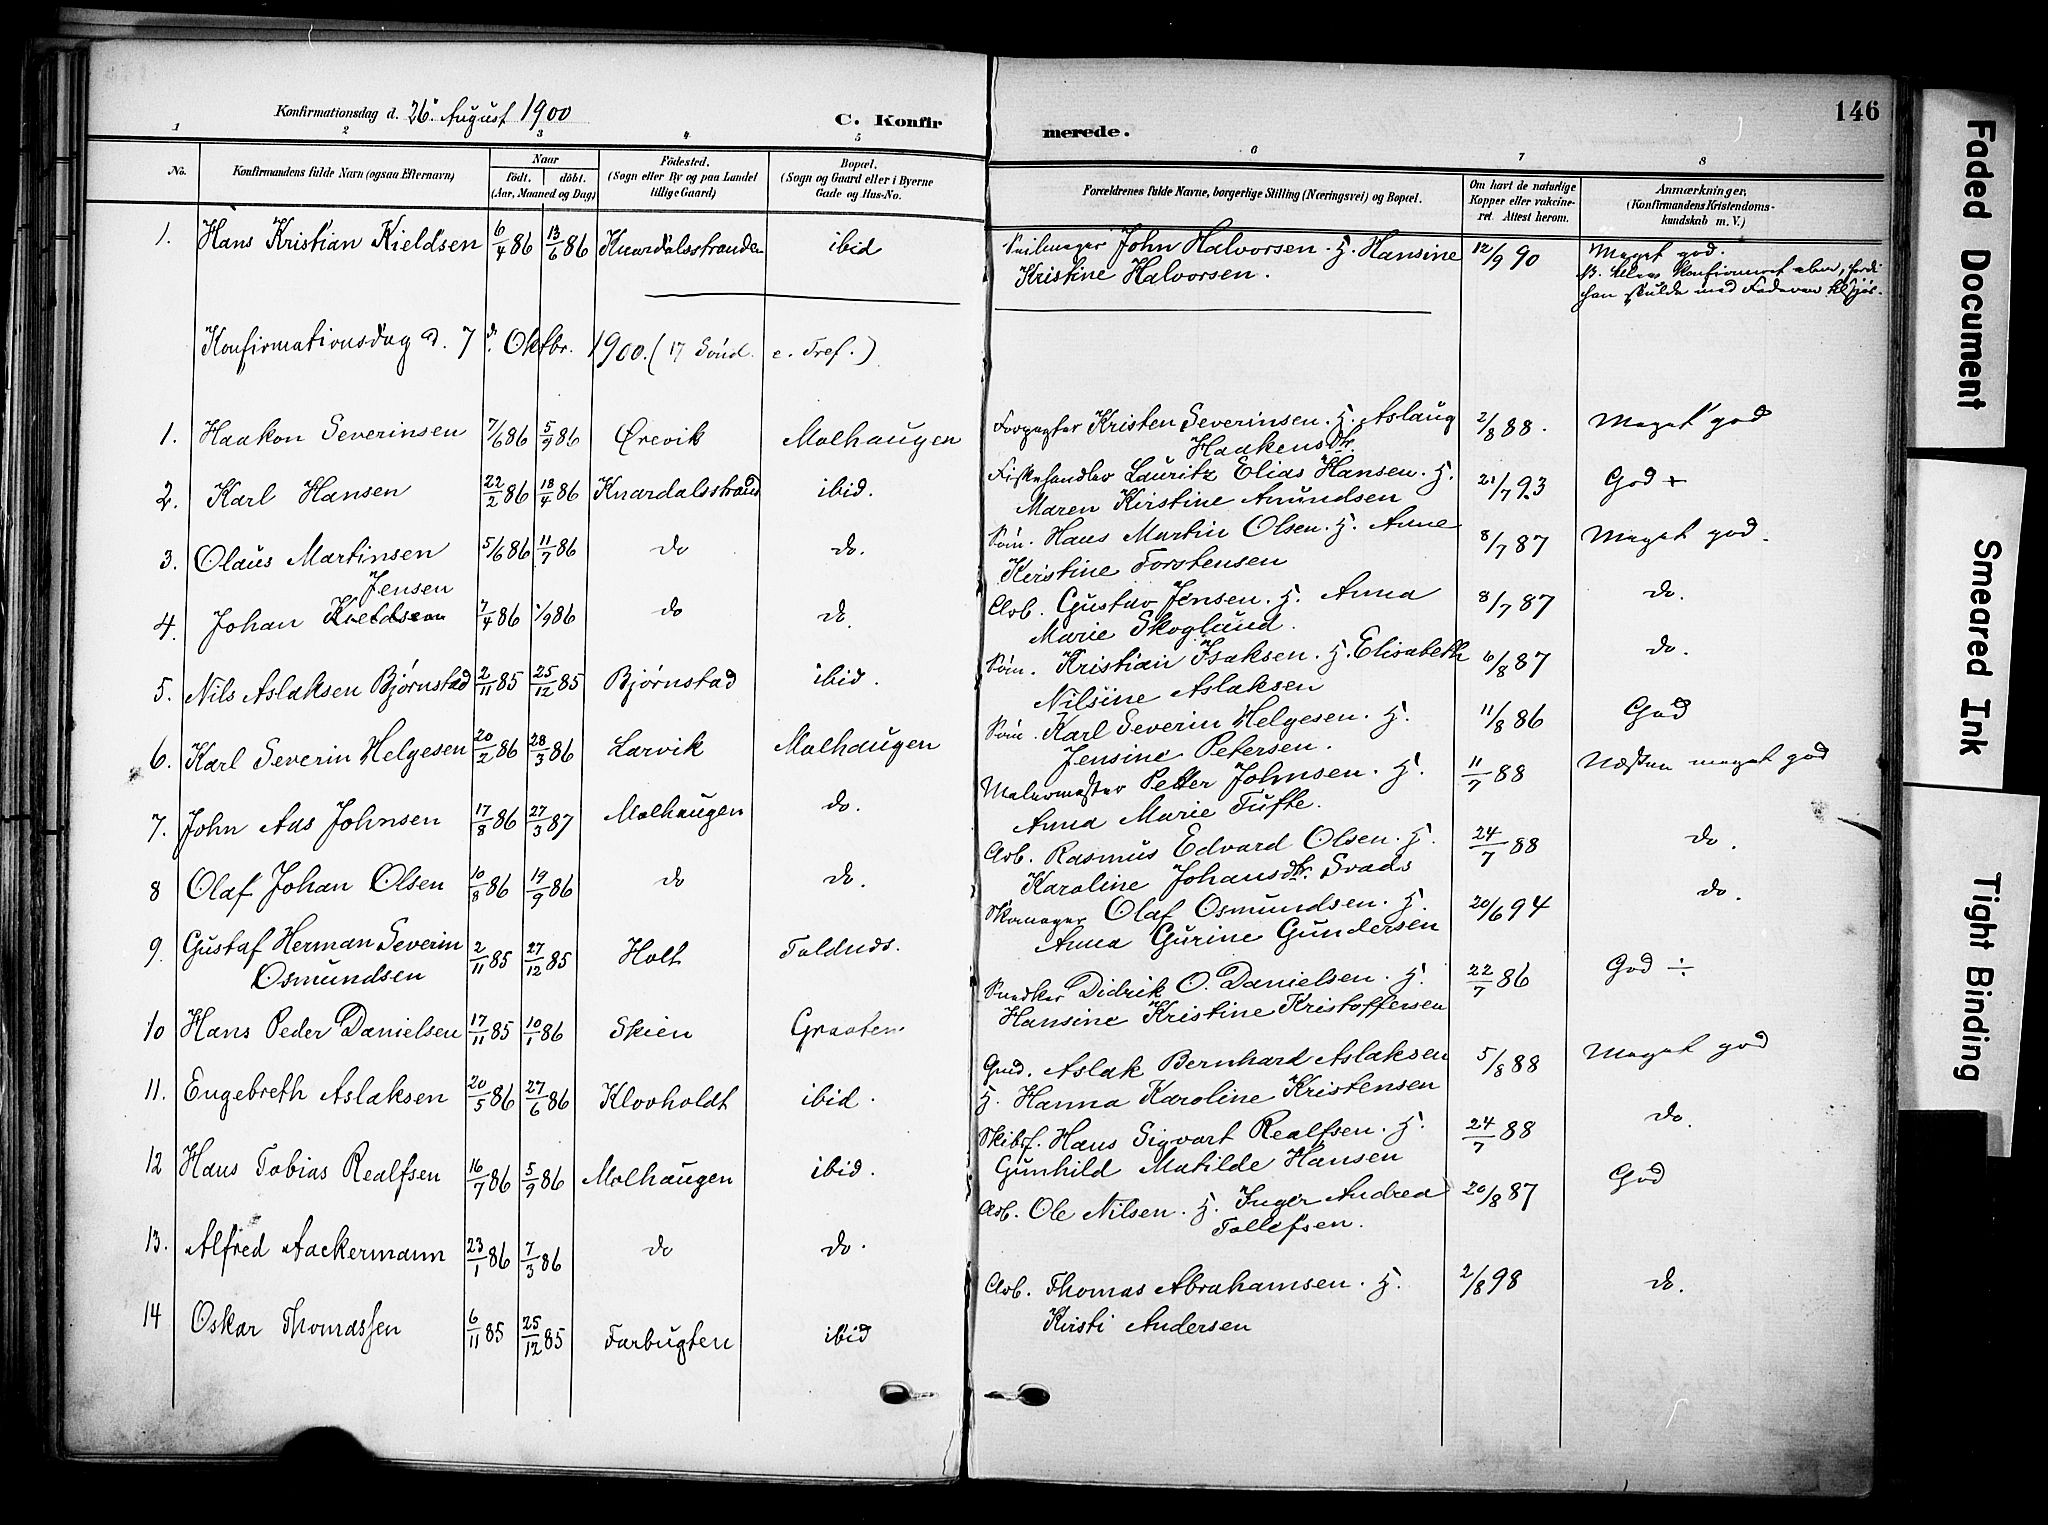 Konfirmationsdag d. 26. August 1900
C. Konfirmerede.
146
1 2 3 4 5 6 7 8
No.
Konfirmandens fulde Navn (ogsaa Efternavn)
Naar
födt. döbt.
(Aar, Maaned og Dag)
Födested.
(Sogn eller By og paa Landet
tillige Gaard)
Bopæl.
(Sogn og Gaard eller i Byerne
Gade og Hus-No.
Forældrenes fulde Navne, borgerlige Stilling (Næringsvei) og Bopæl.
Om havt de naturlige
Kopper eller vakcine-
ret. Attest herom.
Anmærkninger,
(Konfirmandens Kristendoms-
kundskab m. V.)
1. Hans Kristian Kieldsen 6/4 86 13/6 86 Knardalsstranden ibid John Halvorsen. H. Hansine 12/9 90 Meget god.
Kristine Halvorsen.
Konfirmationsdag d. 7 d. Oktbr. 1900. (17 Sönd. e. Tref.)
1. Haakon Severinsen 7/6 86 5/9 86 Ørevik Molhaugen Forpagter Kristen Severinsen. H. Aslaug 2/8 88. Meget god
Haakensdtr.
2. Karl Hansen 22/2 86 18/4 86 Knardalsstrand ibid. Fiskehandler Lauritz Elias Hansen. H. 21/7 93 God +
Maren Kirstine Amundsen
3. Olaus Martinsen 5/6 86 11/7 86 do do. Söm. Hans Martin Olsen. H. Anne 8/7 87 Meget god.
Kristine Torstensen
Jensen
4. Johan Kieldsen 7/4 86 1/9 86 do do. Arb. Gustav Jensen. H. Anna 8/7 87 do.
Marie Skoglund.
5. Nils Aslaksen Bjørnstad 2/11 85 25/12 85 Bjørnstad ibid. Söm. Kristian Isaksen. H. Elisabeth 6/8 87 do.
Nilsine Aslaksen
6. Karl Severin Helgesen 20/2 86 28/3 86 Larvik Molhaugen Söm. Karl Severin Helgesen. H. 11/8 86 God
Jensine Petersen.
7. John Aas Johnsen 17/8 86 27/3 87 Molhaugen do. Malermester Petter Johnsen. H. 11/7 88 Næsten meget god
Anna Marie Tufte.
8 Olaf Johan Olsen 10/8 86 19/9 86 do do. Arb. Rasmus Edvard Olsen. H. 24/7 88 do.
Karoline Johansdtr. Svads
9. Gustaf Herman Severin 2/11 85 27/12 85 Holt Toldnds. Skomager Olaf Osmundsen. H. 20/6 94 do.
Osmundsen
Anna Gurine Gundersen
10 Hans Peder Danielsen 17/11 85 10/1 86 Skien Graaten Snedker Didrik O. Danielsen. H. 22/7 86 God ÷
Hansine Kristine Kristoffersen
11. Engebreth Aslaksen 20/5 86 27/6 86 Klovholdt ibid. Grd. Aslak Bernhard Aslaksen 5/8 88 Meget god
H. Hanna Karoline Kristensen
12 Hans Tobias Realfsen 16/7 86 5/9 86 Molhaugen ibid. Skibsf. Hans Sigvart Realfsen. H. 24/7 88 do.
Gunhild Matilde Hansen
13. Alfred Aackermann 23/1 86 7/3 86 do do. Arb. Ole Nilsen. H. Inger Andrea 20/8 87 God
Tollefsen.
14 Oskar Thomassen 6/11 85 25/12 85 Farbugten ibid Arb. Thomas Abrahamsen. H. 2/8 98 do.
Kirsti Andersen
Faded Document
Smeared Ink
Tight Binding